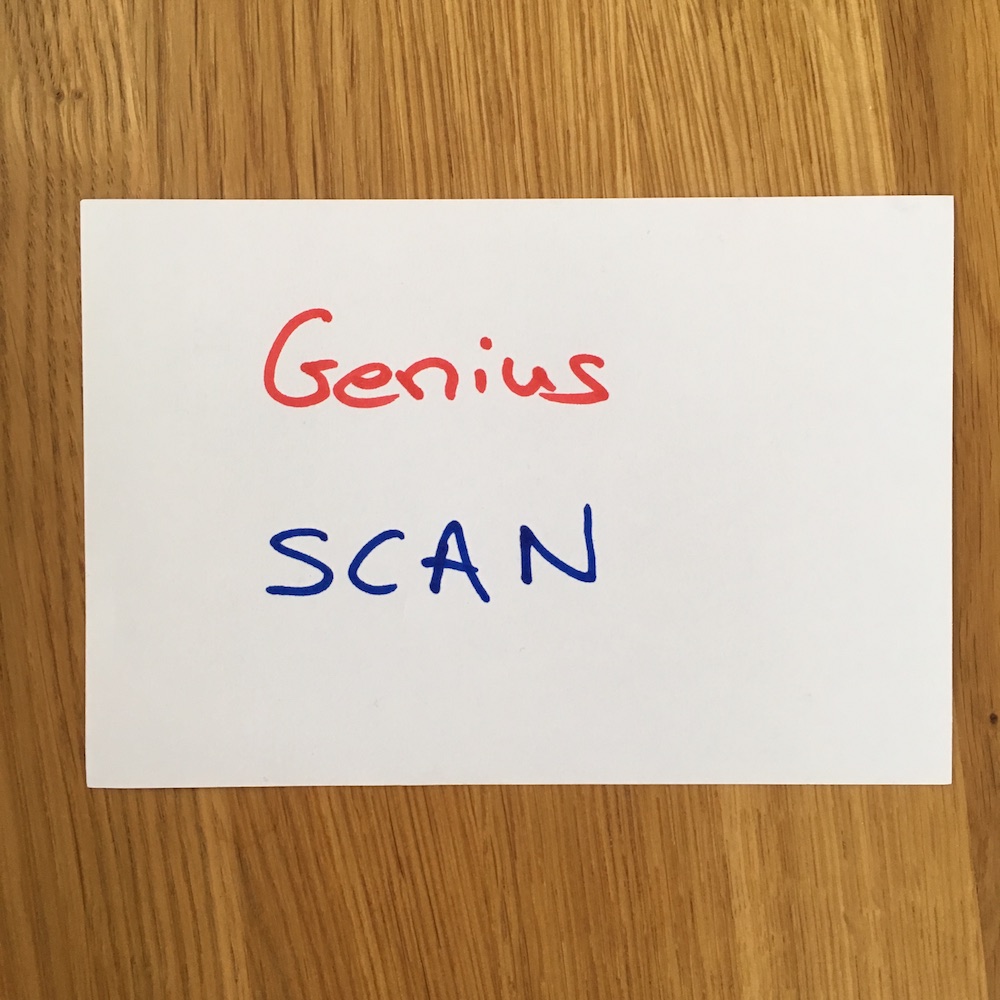 Genius
SCAN